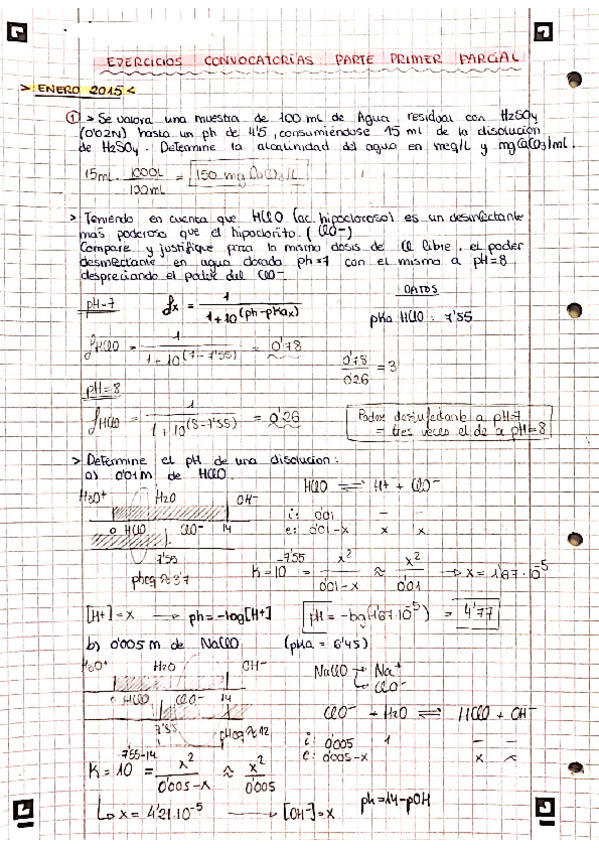 EJERCICIOS CONVOCATORIAS PARTE PRIMER PARCIAL
> ENERO 2015 <
① > Se valora una muestra de 100 ml de Agua residual con H2SO4
(0'02N) hasta un ph de 4'5, consumiéndose 15 ml de la disolución
de H2SO4. Determine la alcalinidad del agua en meq/L y mgCaCO3/ml.
15ml · 1000L / 100ml = 150 mg CaCO3/L
> Teniendo en cuenta que HClO (ac. hipocloroso) es un desinfectante
más poderoso que el hipoclorito. (ClO-)
Compare y justifique para la misma dosis de Cl libre, el poder
desinfectante en agua clorada ph=7 con el mismo a pH=8
despreciando el poder del ClO-
DATOS
pH=7 fx = 1 / 1+10^(ph-pKax) pKa HClO : 7'55
fHClO = 1 / 1+10^(7-7'55) = 0'78
0'78 / 0'26 = 3
pH=8
fHClO = 1 / 1+10^(8-7'55) = 0'26
Poder desinfectante a pH=7
= tres veces el de a pH=8
> Determine el pH de una disolucion:
a) 0'01M de HClO.
HClO ⇌ H+ + ClO-
H3O+ H2O OH-
i: 0'01 - -
0 HClO ClO- 14
e: 0'01-x x x
7'55
pheq ≈ 3'7
K = 10^-7'55 = x² / 0'01-x ≈ x² / 0'01 → x = 1'67·10^-5
[H+] = x → ph = -log[H+] pH = -log(1'67·10^-5) = 4'77
b) 0'005 M de NaClO (pKa = 6'45)
H3O+ H2O OH-
NaClO → Na+
ClO-
0 HClO ClO- 14
7'55 pHeq ≈ 12
ClO- + H2O ⇌ HClO + OH-
i: 0'005 1 - -
e: 0'005-x x x
K = 10^7'55-14 = x² / 0'005-x ≈ x² / 0'005
x = 4'21·10^-5 → [OH-] = x ph = 14-pOH